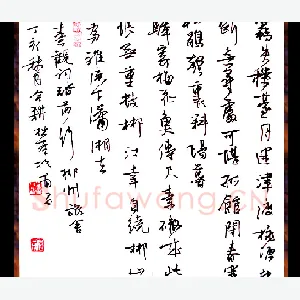 霧失樓臺月迷津渡桃源望
斷無尋處可堪孤館閉春寒
杜鵑聲裏斜陽暮
驛寄梅花魚傳尺素砌成此
恨無重數郴江幸自繞郴山
為誰流下瀟湘去
秦觀詞踏莎行郴州旅舍
丁亥秋月
Shufawang.CN